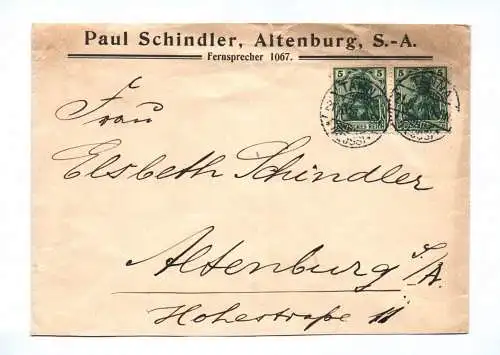 Paul Schindler, Altenburg, S.-A.
Fernsprecher 1067.
5 5 5
Frau
Elsbeth Schindler
Altenburg S/A.
Hohestraße 11